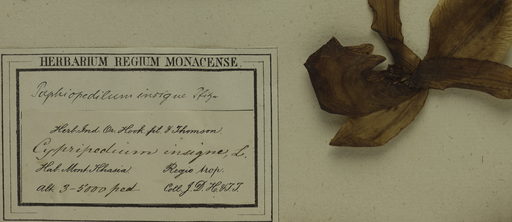 HERBARIUM REGIUM MONACENSE.
Paphiopedilum insigne Pfitz.
Herb. Ind. Or. Hook. fil. & Thomson.
Cypripedium insigne, L.
Hab. Mont. Khasia Regio trop.
Alt. 3-5000 ped Coll. J. D. H. & T. T.